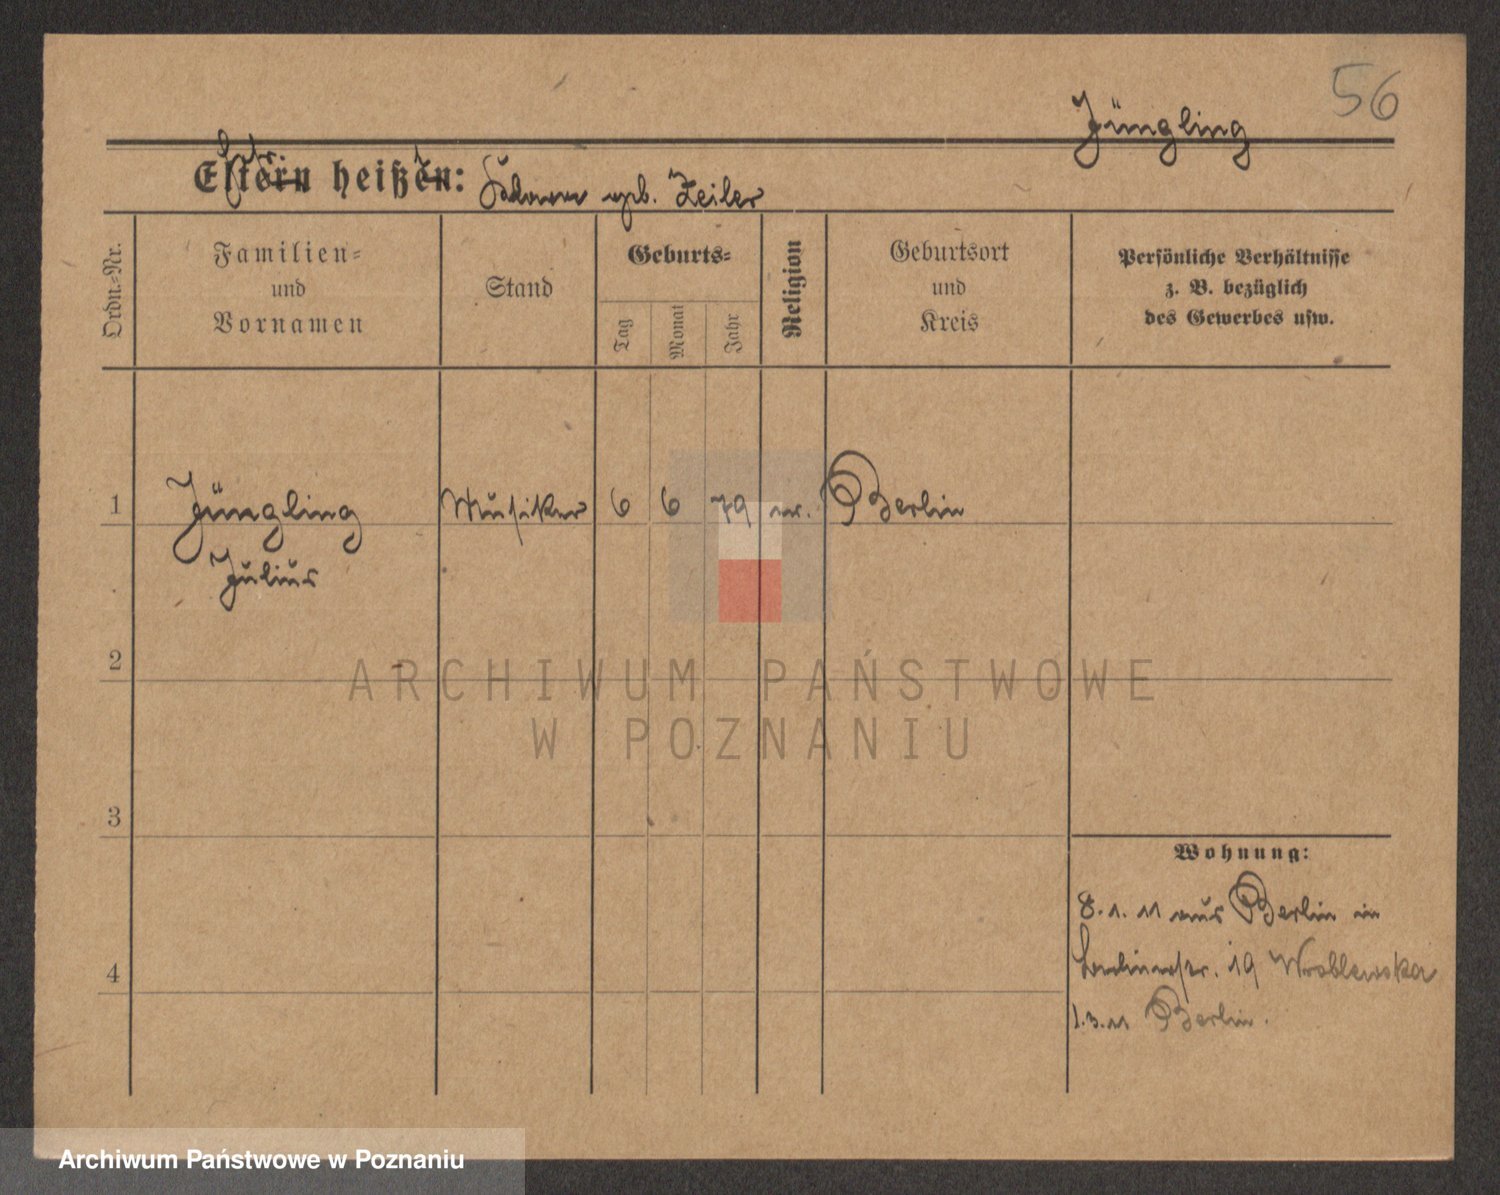 56
Jüngling
Eltern heißen: geb. Zeiler
Ordn.-Nr.
Familien-
und
Vornamen
Stand
Geburts-
Tag
Monat
Jahr
Religion
Geburtsort
und
Kreis
Persönliche Verhältnisse
z. B. bezüglich
des Gewerbes usw.
1
Jüngling
Julius
Musiker
6
6
79
Berlin
2
ARCHIWUM PAŃSTWOWE
W POZNANIU
3
4
Wohnung:
8.1.11 aus Berlin in
19 Wroblewska
1.3.11 Berlin.
Archiwum Państwowe w Poznaniu